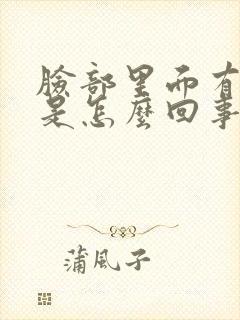 臉部里而有
是怎麼回事
蒲風子